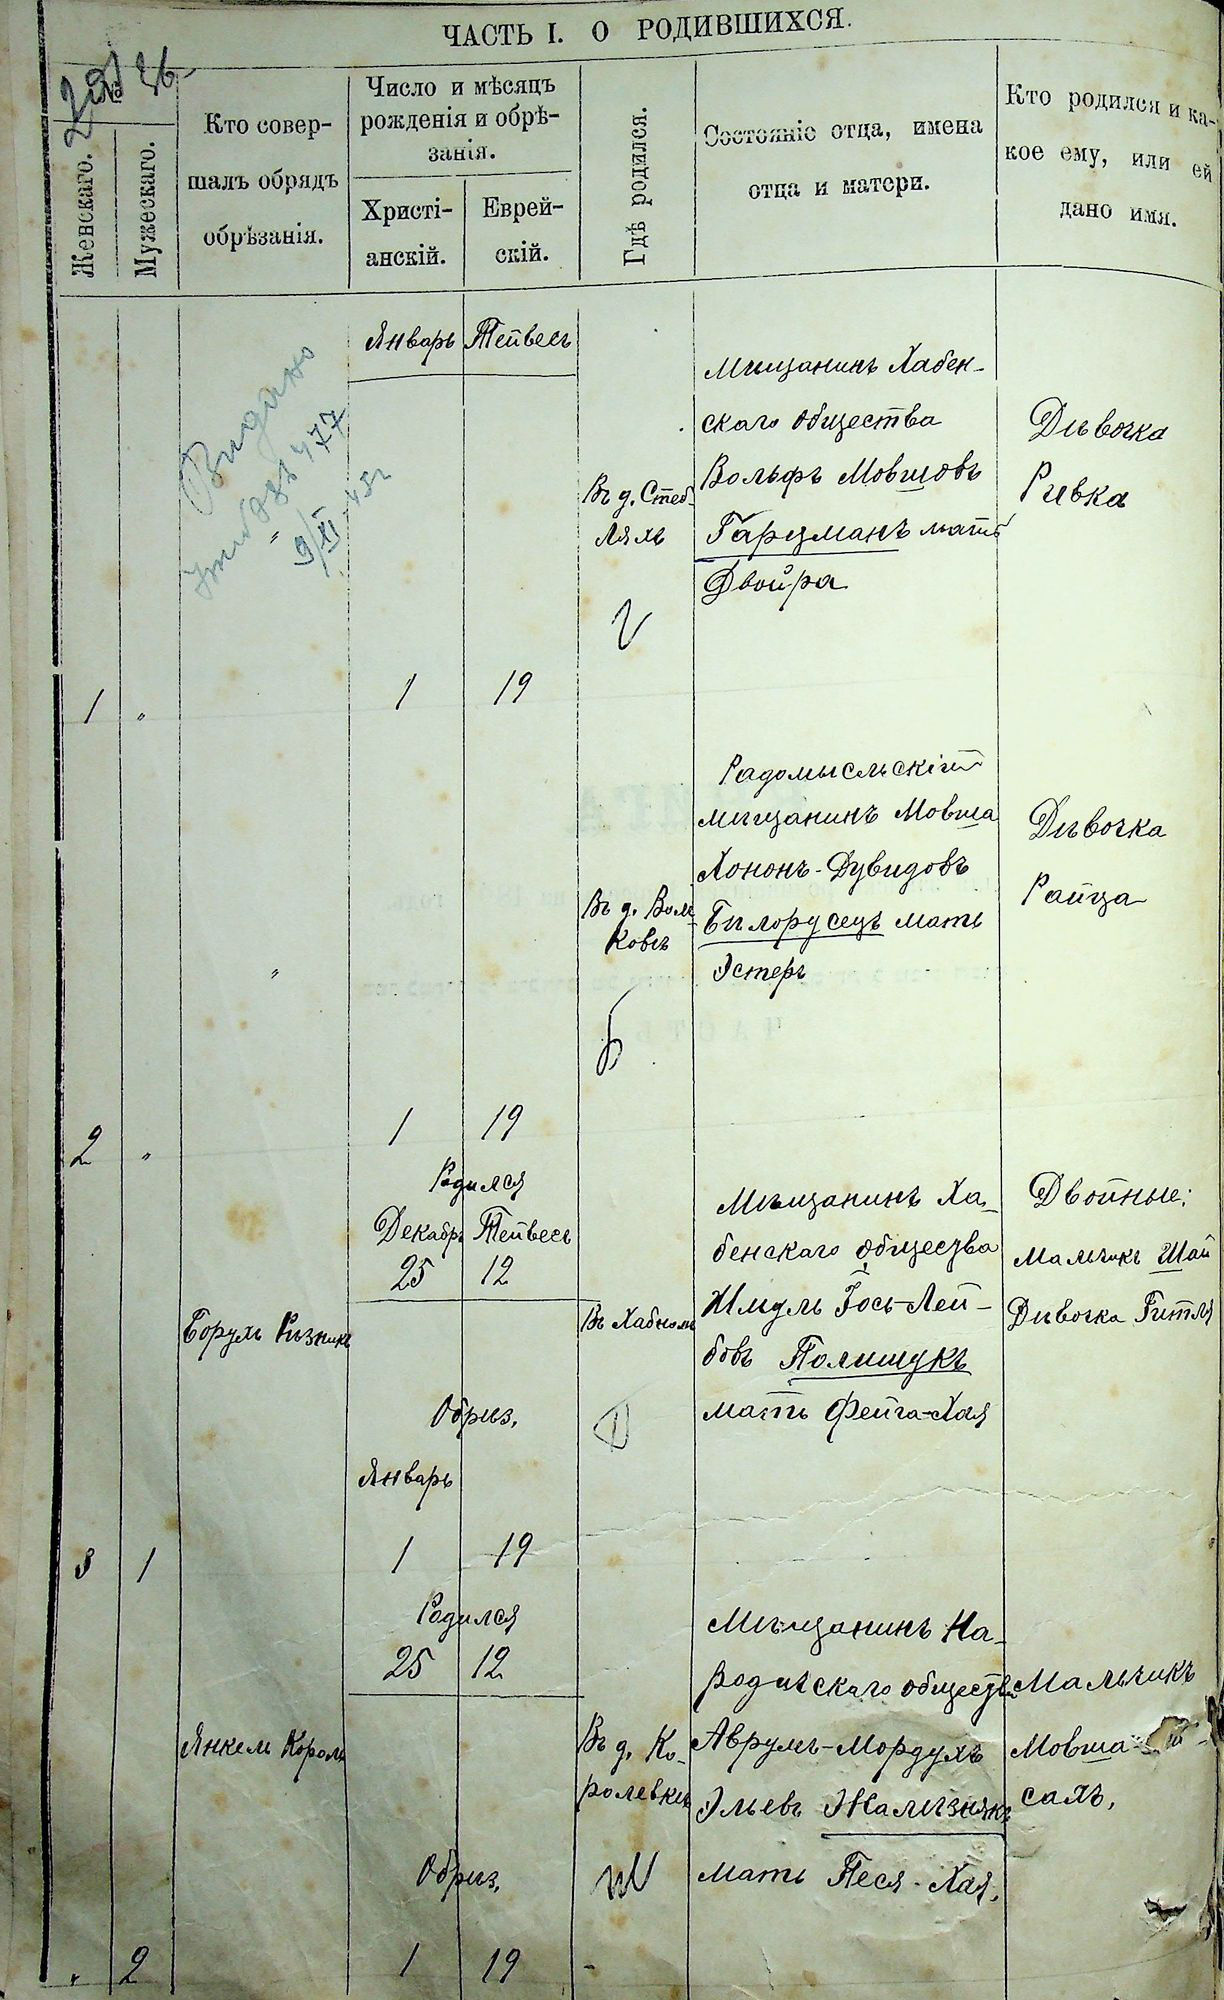 ЧАСТЬ I. О РОДИВШИХСЯ.
№
Женскаго.
Мужескаго.
Кто совер-
шалъ обрядъ
обрѣзанія.
Число и мѣсяцъ
рожденія и обрѣ-
занія.
Христі-
анскій.
Еврей-
скій.
Гдѣ родился.
Состояніе отца, имена
отца и матери.
Кто родился и ка-
кое ему, или ей
дано имя.
Январь Тейвесъ
Видано
477
1 " "
1 19
Въ д. Стеб-
ляхъ
Мѣщанинъ Хабен-
скаго общества
Вольфъ Мовшовъ
Гарцманъ мать
Двойра
Дѣвочка
Ривка
2 " "
1 19
Въ д. Вол-
ковѣ
Радомысльскій
мѣщанинъ Мовша
Хононъ-Дувидовъ
Бѣлорусецъ мать
Эстеръ
Дѣвочка
Райца
3 1
Борухъ Рѣзникъ
Родился
Декабрь Тейвесъ
25 12
Обрѣз.
Январь
1 19
Въ Хабномъ
Мѣщанинъ Ха-
бенскаго общества
Шмуль Гось-Лей-
бовъ Полишукъ
мать Фейга-Хая
Двойные:
Мальчикъ Шай
Дѣвочка Гитля
" 2
Янкель Король
Родился
25 12
Обрѣз.
1 19
Въ д. Ко-
ролевкѣ
Мѣщанинъ На-
родичскаго общества
Аврумъ-Мордухъ
Эльевъ Жалѣзнякъ
мать Песя-Хая.
Мальчикъ
Мовша-
сахъ.